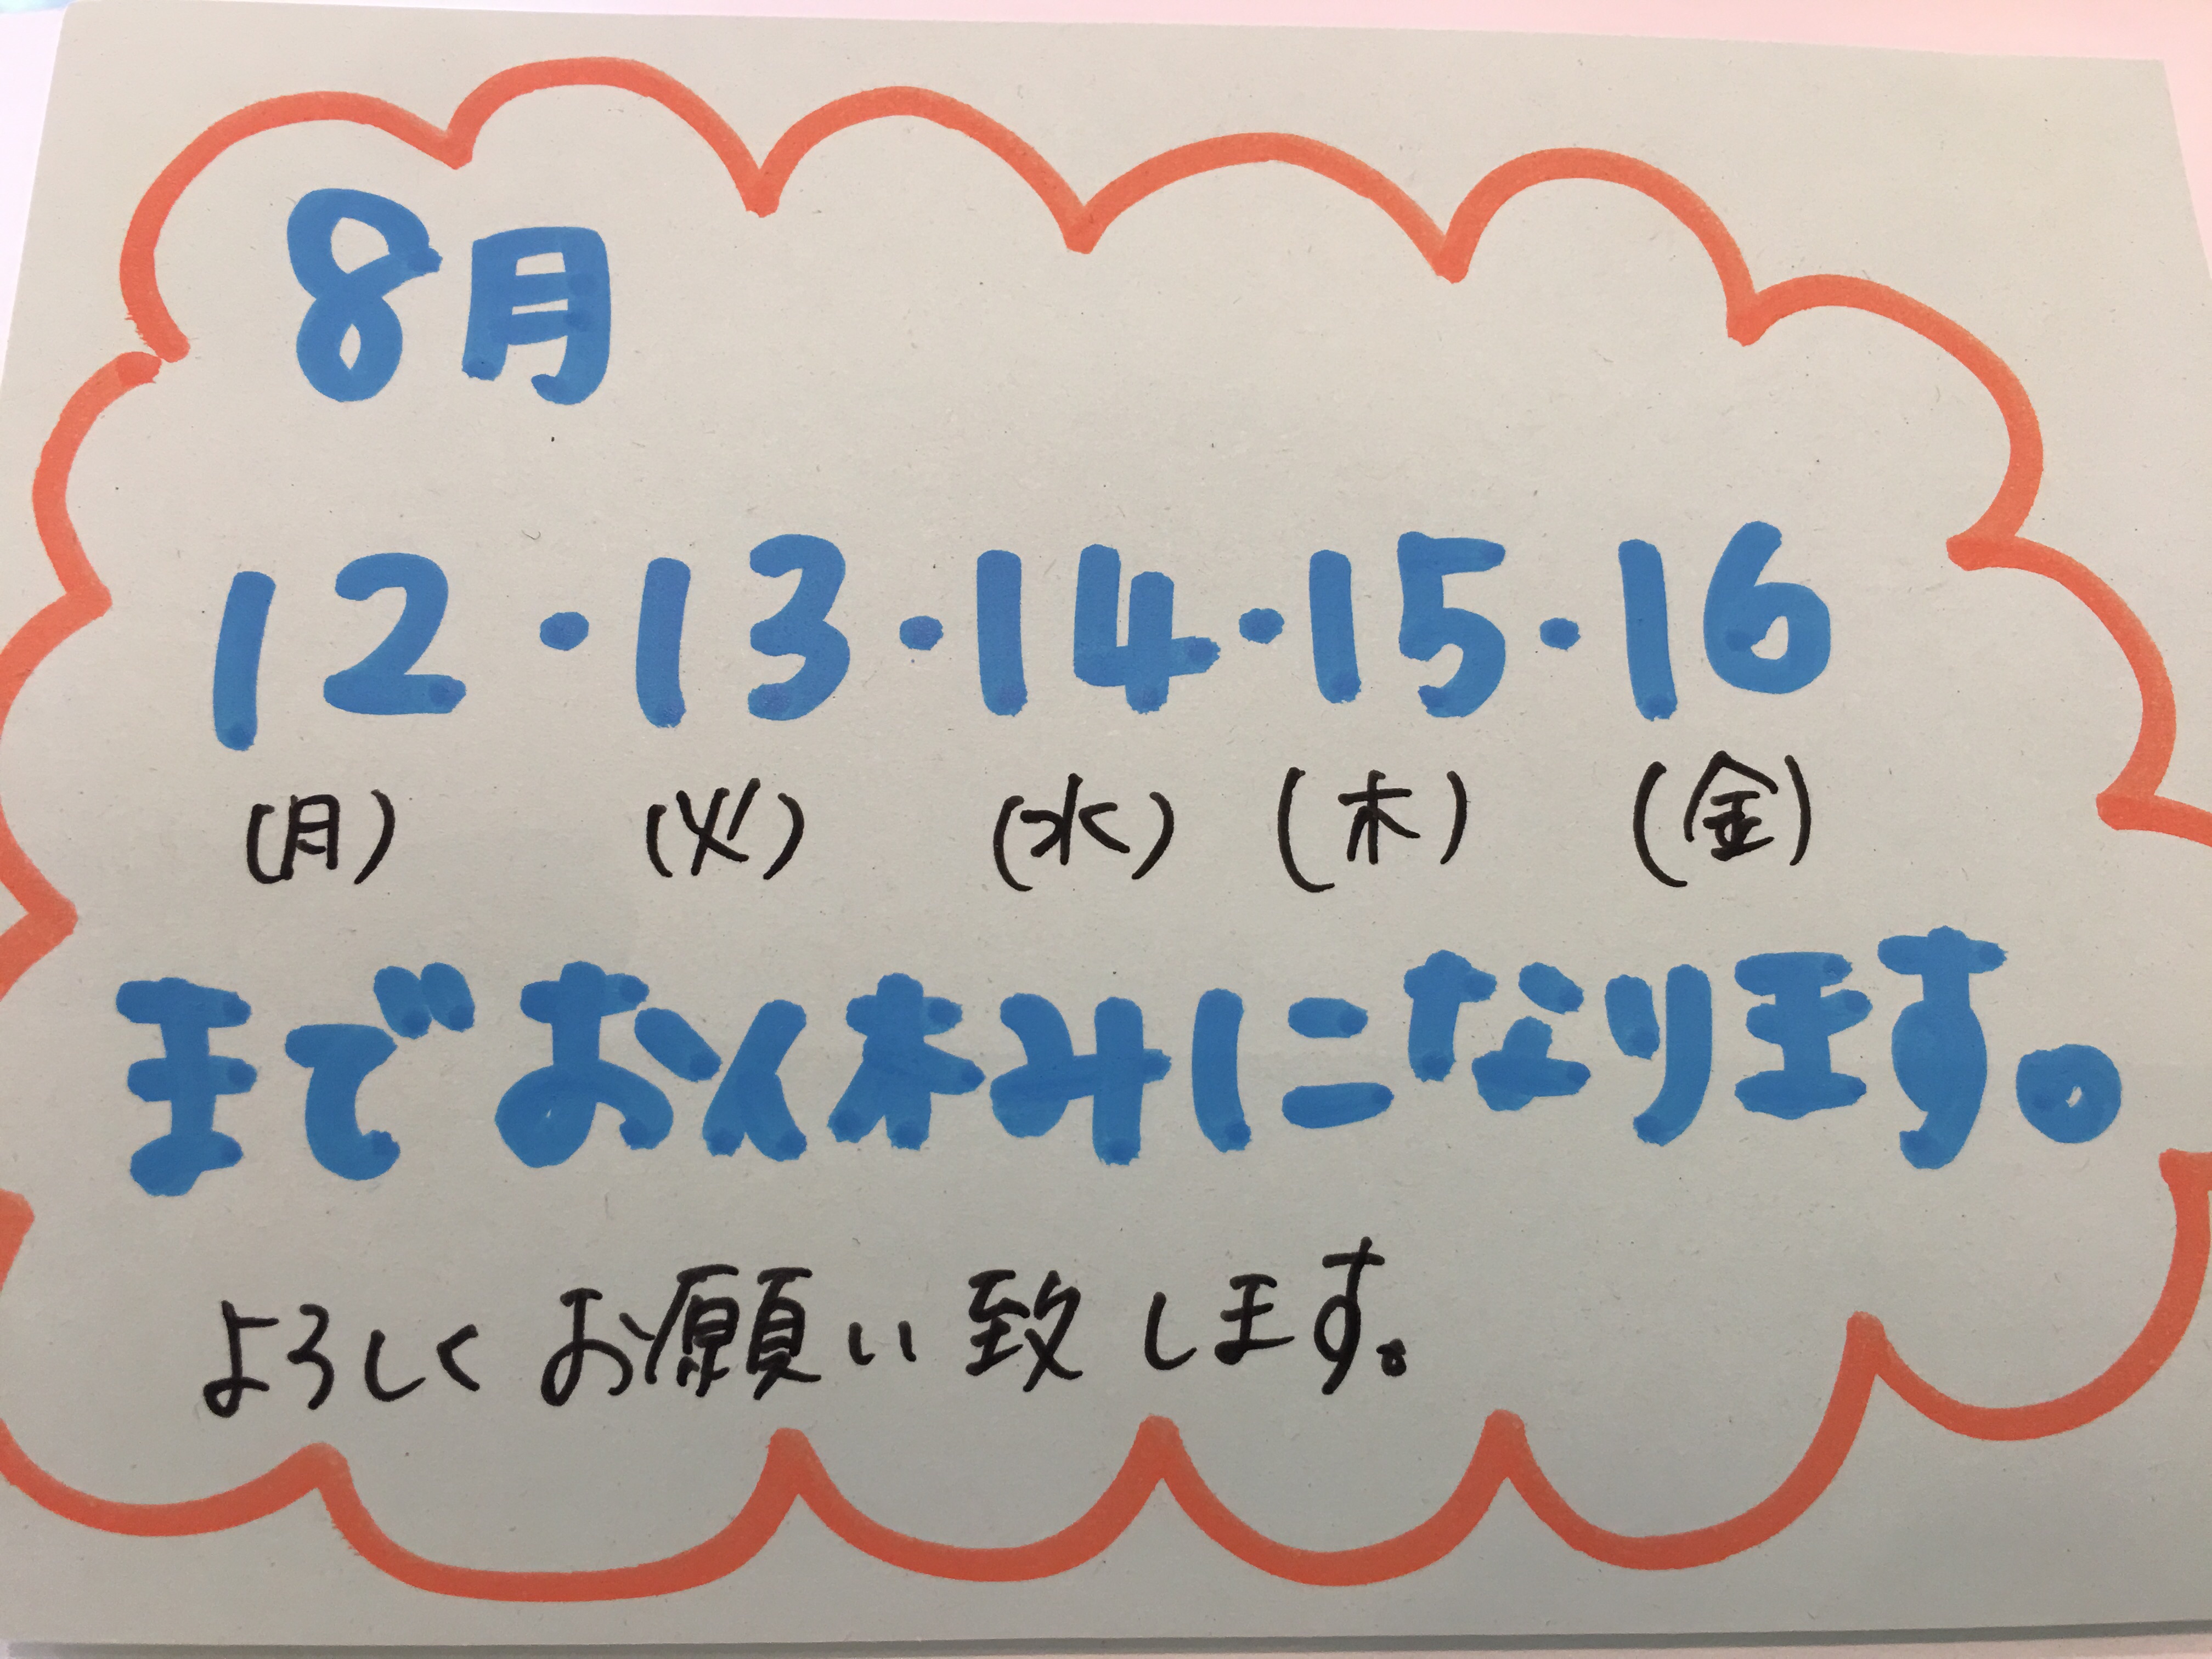 8月
12・13・14・15・16
(月) (火) (水) (木) (金)
までお休みになります。
よろしくお願い致します。